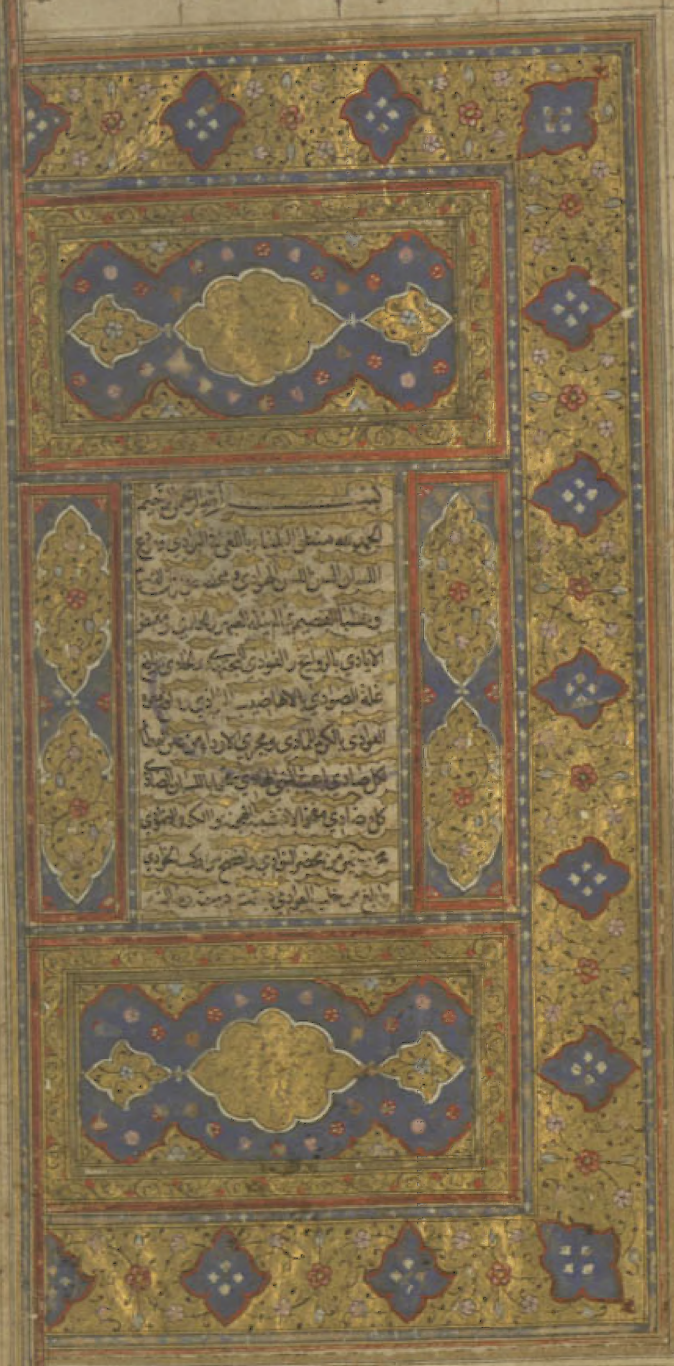 بسم الله الرحمن الرحيم
الحمد لله منطق البلغاء باللغى في البوادي ومودع
اللسان ألسن اللسن الهوادي ومخصص عروق القيصوم
وغضى القصيم بما لم ينله العبهر والجادي ومفيض
الايادي بالروائح والغوادي للمجتدي والجادي وناقع
غلة الصوادي بالاهاضيب الثوادي ودافع معرة
العوادي بالكرم الممادي ومجري الاوداء من عين العطاء
لكل صادي باعث النبي الهادي مفحما باللسان الضادي
كل مضادي مفخما لا تشينه الهجنة واللكنة والضوادي
محمد خير من حضر النوادي وافصح من ركب الخوادي
وابلغ من حلب العوادي